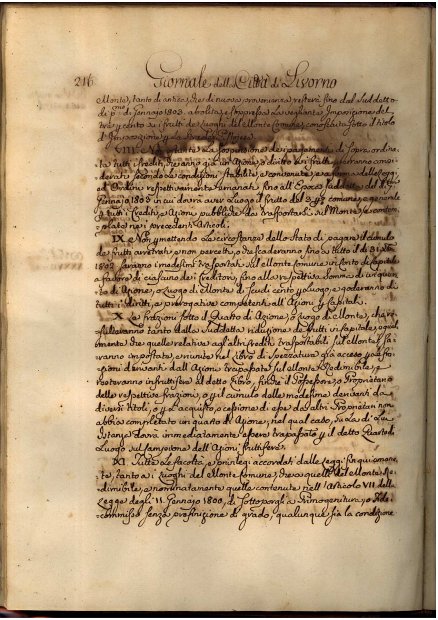 216 Giornale della Città di Livorno
Monte, tanto di antica, che di nuova provenienza, resterà fino dal suddetto
dì p.mo di Gennajo 1803. abolita, e soppressa la vigente Imposizione del
tre per cento su i frutti dei Luoghi del Monte Comune, conosciuta sotto il titolo
d'Imposizione
VIII. Nonostante la sospensione dei pagamenti di sopra ordina
ta tutti i Crediti, che sono già in Azione, o dietro saranno consi
derati secondo le condizioni stabilite, e convenute, e a forma delle Leggi,
ed Ordini respettivamente emanati fino all'Epoca suddetta del p.mo
Gennajo 1803 in cui dovrà aver luogo il frutto del 3 per % comune, e generale
a tutti i Crediti, e Azioni pubbliche da trasportarsi sul Monte, e contem
plate nei precedenti Articoli.
IX. Non permettendo la circostanza dello Stato di pagare il cumulo
dei frutti arretrati, e non percetti, o che scaderanno fino a tutto il dì 31 Xbre
1802 saranno i medesimi trasportati sul Monte Comune in conto di Capitale
a favore di ciascuno dei Creditori, fino alla respettiva somma di un quar
to di Azione, o Luogo di Monte di scudi cento per luogo, e goderanno di
tutti i diritti, e prerogative competenti all'Azioni, e Capitali.
X. Le frazioni sotto il Quarto di Azione, o Luogo di Monte, che re
sulteranno tanto dalla suddetta riduzione de frutti in Capitale, egual
mente che quelle relative agli altri Crediti trasportabili sul Monte, sa
ranno impostate, e riunite nel Libro di Spezzature già acceso per le fra
zioni derivanti dall'Azioni trapassate sul Monte Redimibile, e
resteranno infruttifere al detto Libro, finchè il Possessore, o Proprietario
delle respettive frazioni, o per il cumulo delle medesime derivanti da
diversi titoli, o per acquisto, o cessione di esse da altri Proprietari non
abbia completato un quarto di Azione, nel qual caso, a di Lui
Istanza dovrà immediatamente essere trapassato per il detto Quarto di
Luogo sul sensessione dell'Azioni fruttifere.
XI. Tutte le facoltà, e privilegi accordati dalle Leggi fin qui emana
te, tanto a i Luoghi del Monte Comune, che a quelli del Monte Re
dimibile, e nominatamente quelle contenute nell'Articolo VII della
Legge degli 11. Gennajo 1800, di sottoporgli a Primogenitura, o Fide
commisso senza prefinizione di grado, qualunque sia la condizione